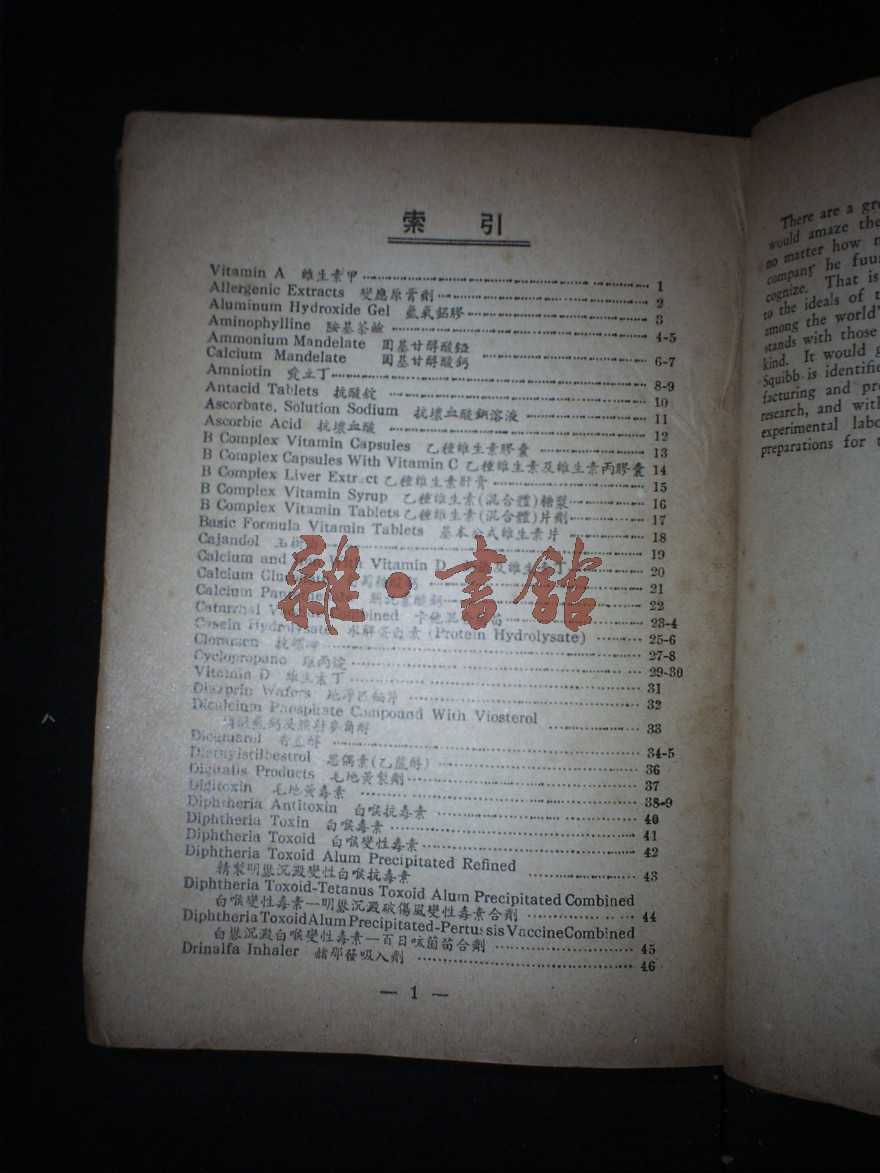 索引
Vitamin A 維生素甲 1
Allergenic Extracts 變應原膏劑 2
Aluminum Hydroxide Gel 氫氧鋁膠 3
Aminophylline 胺基茶鹼 4-5
Ammonium Mandelate 固基甘醇酸錏
Calcium Mandelate 固基甘醇酸鈣 6-7
Amniotin 愛立丁 8-9
Antacid Tablets 抗酸錠 10
Ascorbate, Solution Sodium 抗壞血酸鈉溶液 11
Ascorbic Acid 抗壞血酸 12
B Complex Vitamin Capsules 乙種維生素膠囊 13
B Complex Capsules With Vitamin C 乙種維生素及維生素丙膠囊 14
B Complex Liver Extract 乙種維生素肝膏 15
B Complex Vitamin Syrup 乙種維生素(混合體)糖漿 16
B Complex Vitamin Tablets 乙種維生素(混合體)片劑 17
Basic Formula Vitamin Tablets 基本公式維生素片 18
Cajandol 19
Calcium and With Vitamin D 20
Calcium 21
Calcium 22
Catarrhal Combined 23-4
Casein Hydrolysate 水解蛋白素 (Protein Hydrolysate) 25-6
Clorarsen 27-8
Cyclopropane 環丙烷 29-30
Vitamin D 維生素丁 31
Diazprin Wafers 32
Dicalcium Phosphate Compound With Viosterol
33
Dicumarol 34-5
Diethylstilbestrol 36
Digitalis Products 毛地黃製劑 37
Digitoxin 毛地黃毒素 38-9
Diphtheria Antitoxin 白喉抗毒素 40
Diphtheria Toxin 白喉毒素 41
Diphtheria Toxoid 白喉變性毒素 42
Diphtheria Toxoid Alum Precipitated Refined
精製明礬沉澱變性白喉抗毒素 43
Diphtheria Toxoid-Tetanus Toxoid Alum Precipitated Combined
白喉變性毒素—明礬沉澱破傷風變性毒素合劑 44
Diphtheria Toxoid Alum Precipitated-Pertussis Vaccine Combined
白礬沉澱白喉變性毒素—百日咳菌苗合劑 45
Drinalfa Inhaler 諸那發吸入劑 46
— 1 —
There are a
would amaze the
no matter how
company he
cognize. That is
to the ideals of
among the world'
stands with those
kind. It would
Squibb is
facturing and
research, and
experimental
preparations for
雜·書館